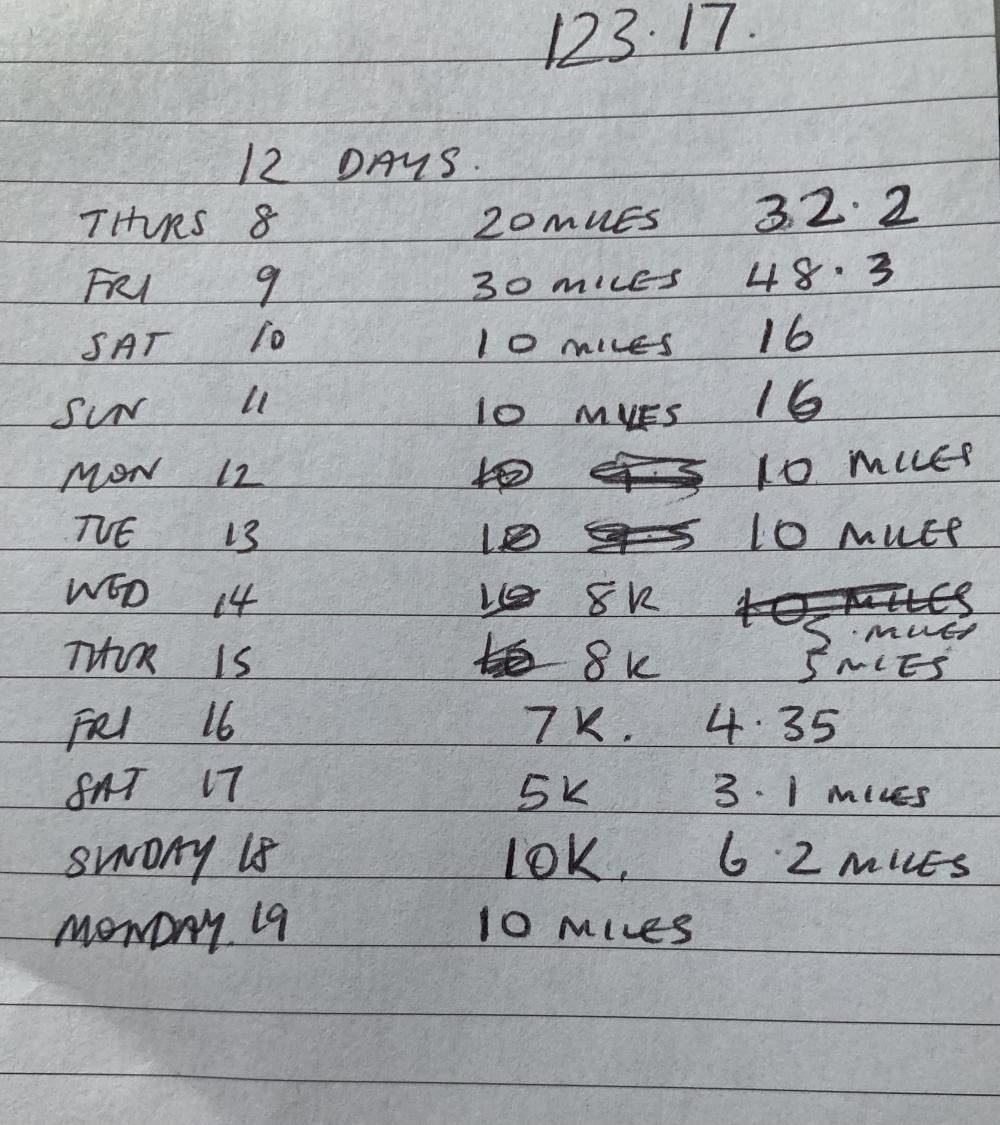 123.17.
12 DAYS.
THURS 8 20 MILES 32.2
FRI 9 30 MILES 48.3
SAT 10 10 MILES 16
SUN 11 10 MILES 16
MON 12 10 9.5 10 MILES
TUE 13 10 9.5 10 MILES
WED 14 10 8K 10 MILES
5 MILES
THUR 15 8K 5 MILES
FRI 16 7K. 4.35
SAT 17 5K 3.1 MILES
SUNDAY 18 10K. 6.2 MILES
MONDAY. 19 10 MILES